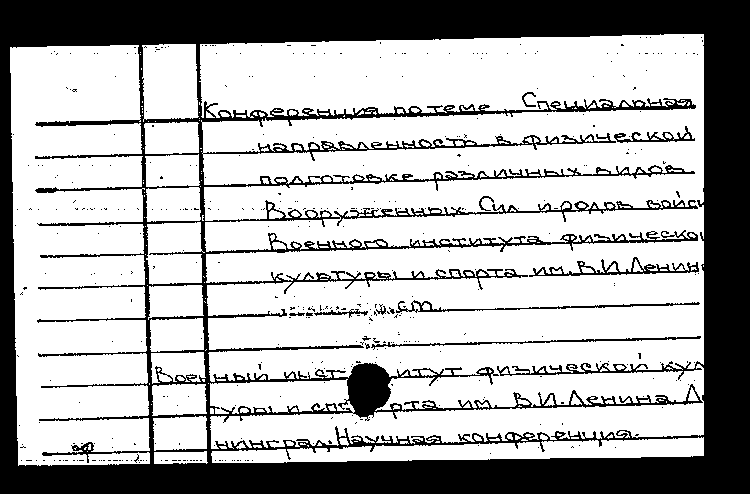 Конференция по теме „Специальная
направленность в физической
подготовке различных видов
Вооруженных Сил и родов войск
Военного института физическо
культуры и спорта им. В.И.Ленин
ст.
Военный инст итут физической кул
туры и спорта им. В.И.Ленина. Ле
нинград. Научная конференция.